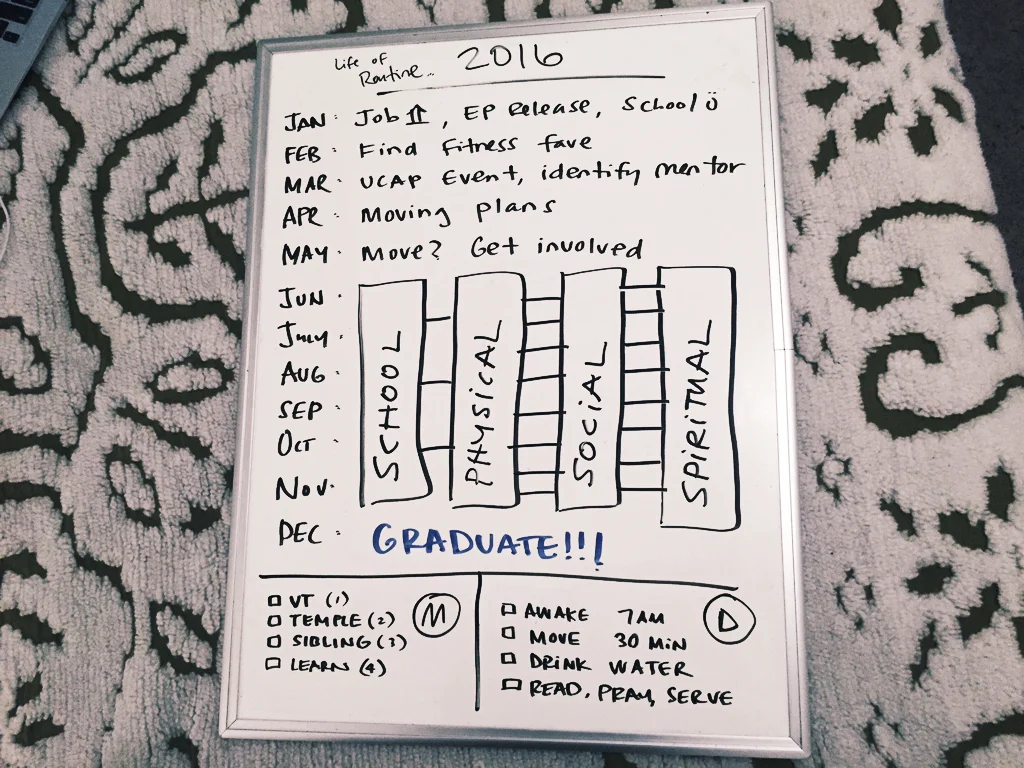 Life of Routine.. 2016
JAN: Job ⇑, EP Release, School ü
FEB: Find Fitness fave
MAR: UCAP Event, identify mentor
APR: Moving plans
MAY: Move? Get involved
JUN:
July:
AUG:
SEP:
OCT:
NOV:
SCHOOL
PHYSICAL
SOCIAL
SPIRITUAL
DEC: GRADUATE!!!
M
VT (1)
TEMPLE (2)
SIBLING (3)
LEARN (4)
D
AWAKE 7AM
MOVE 30 MIN
DRINK WATER
READ, PRAY, SERVE